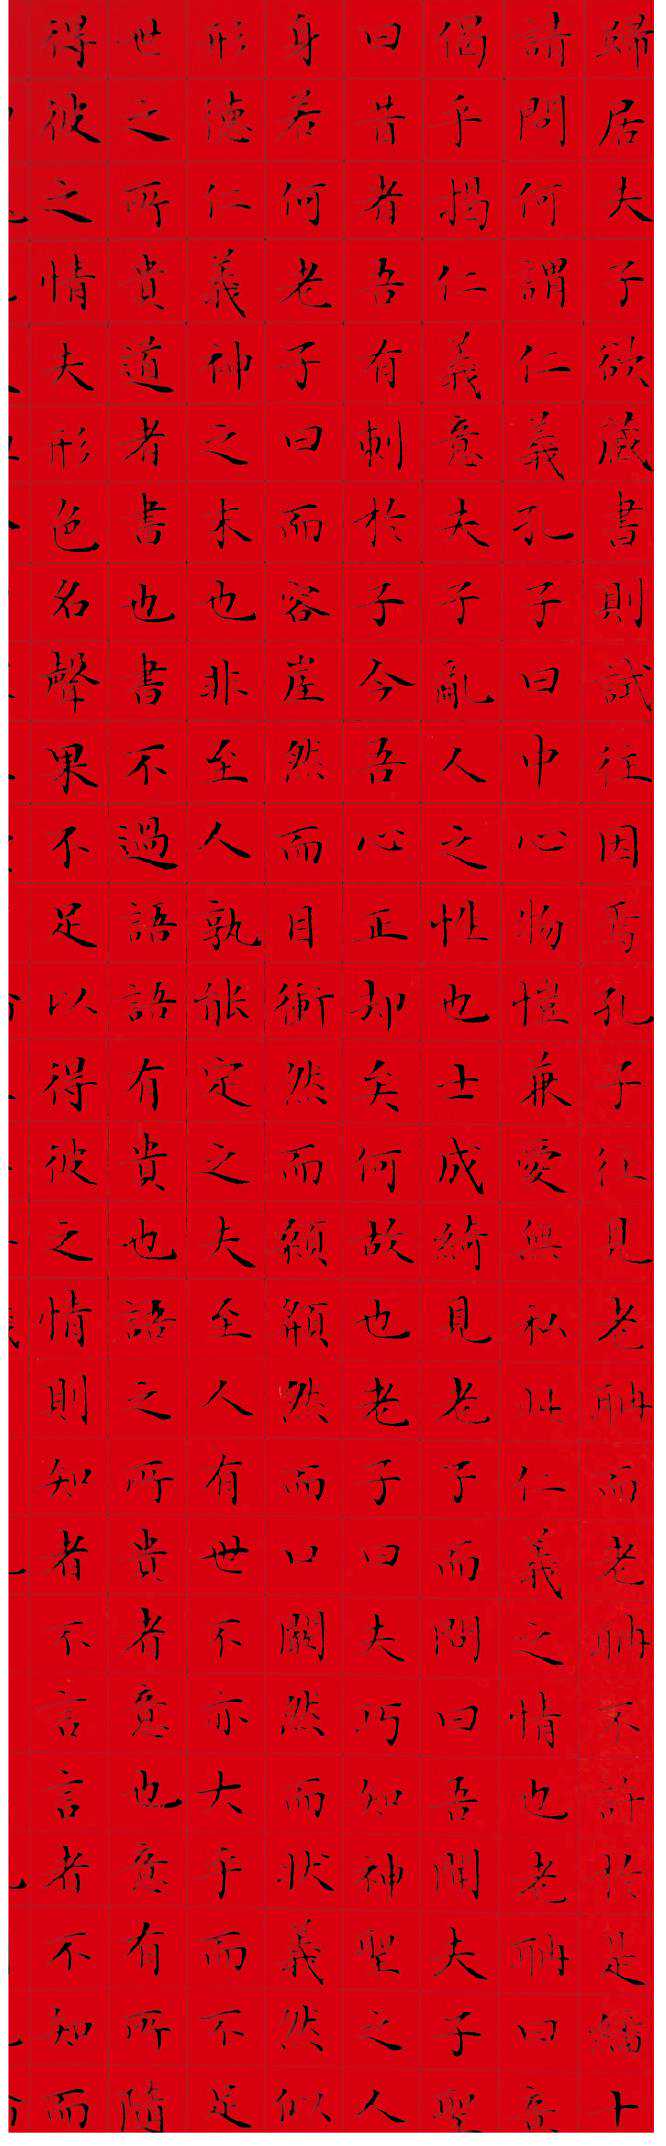 歸居夫子欲藏書則試往因焉孔子往見老聃而老聃不許於是繙十
請問何謂仁義孔子曰中心物愷兼愛無私此仁義之情也老聃曰意
偈乎揭仁義意夫子亂人之性也士成綺見老子而問曰吾聞夫子聖
曰昔者吾有刺於子今吾心正却矣何故也老子曰夫巧知神聖之人
身若何老子曰而容崖然而目衝然而顙頯然而口闞然而狀義然似
形德仁義神之末也非至人孰能定之夫至人有世不亦大乎而不足
世之所貴道者書也書不過語語有貴也語之所貴者意也意有所隨
得彼之情夫形色名聲果不足以得彼之情則知者不言言者不知而